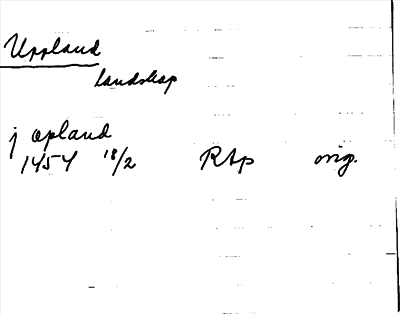 Uppland
landskap
j opland
1454 18/2 RAp orig.